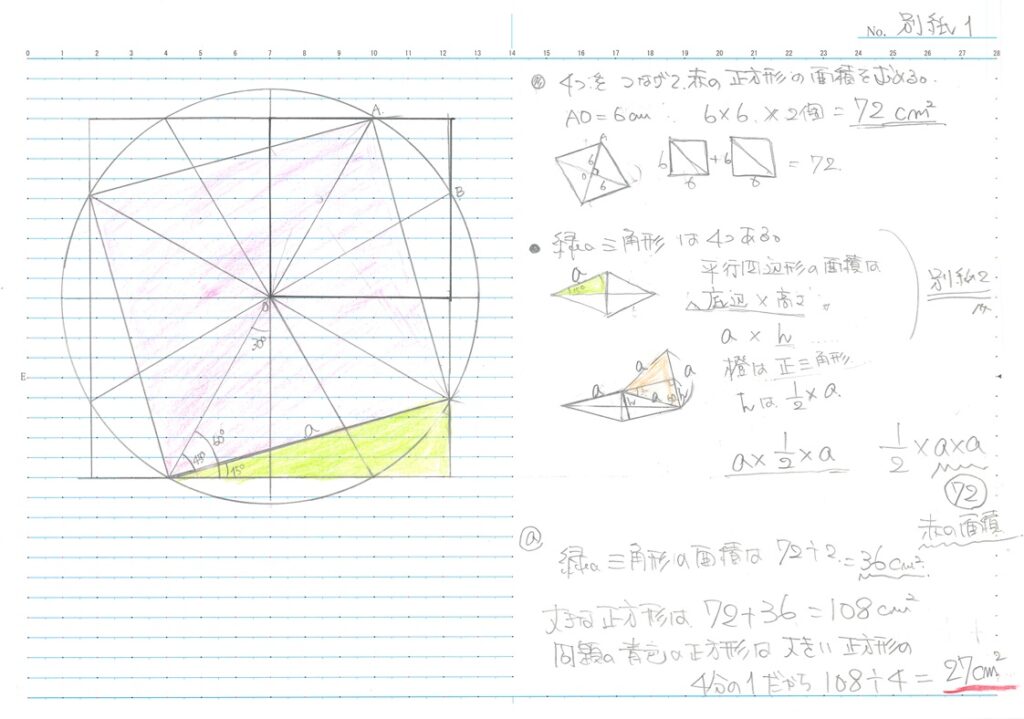 No. 別紙1
0 1 2 3 4 5 6 7 8 9 10 11 12 13 14 15 16 17 18 19 20 21 22 23 24 25 26 27 28
A
B
O
30°
E
60°
45°
15°
a
4つをつなげて、赤の正方形の面積を求める。
AO=6cm 6×6×2個=72cm²
A
6
O
6
6
6
+
6
6
=72
緑の三角形は4つある。
a
15°
平行四辺形の面積は
底辺×高さ
別紙2
a×h
橙は正三角形
a
a
a
a
h
h
hは1/2×a
a×1/2×a
1/2×a×a
72
赤の面積
ⓐ
緑の三角形の面積は 72÷2=36cm²
大きな正方形は 72+36=108cm²
問題の青色の正方形は大きい正方形の
4分の1だから 108÷4=27cm²